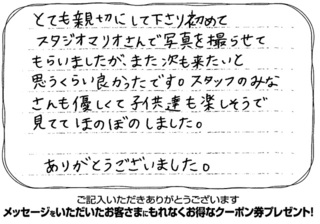 とても親切にして下さり初めて
スタジオマリオさんで写真を撮らせて
もらいましたが、また次も来たいと
思うくらい良かったです。スタッフのみな
さんも優しくて子供達も楽しそうで
見ててほのぼのしました。
ありがとうございました。
ご記入いただきありがとうございます
メッセージをいただいたお客さまにもれなくお得なクーポン券プレゼント!